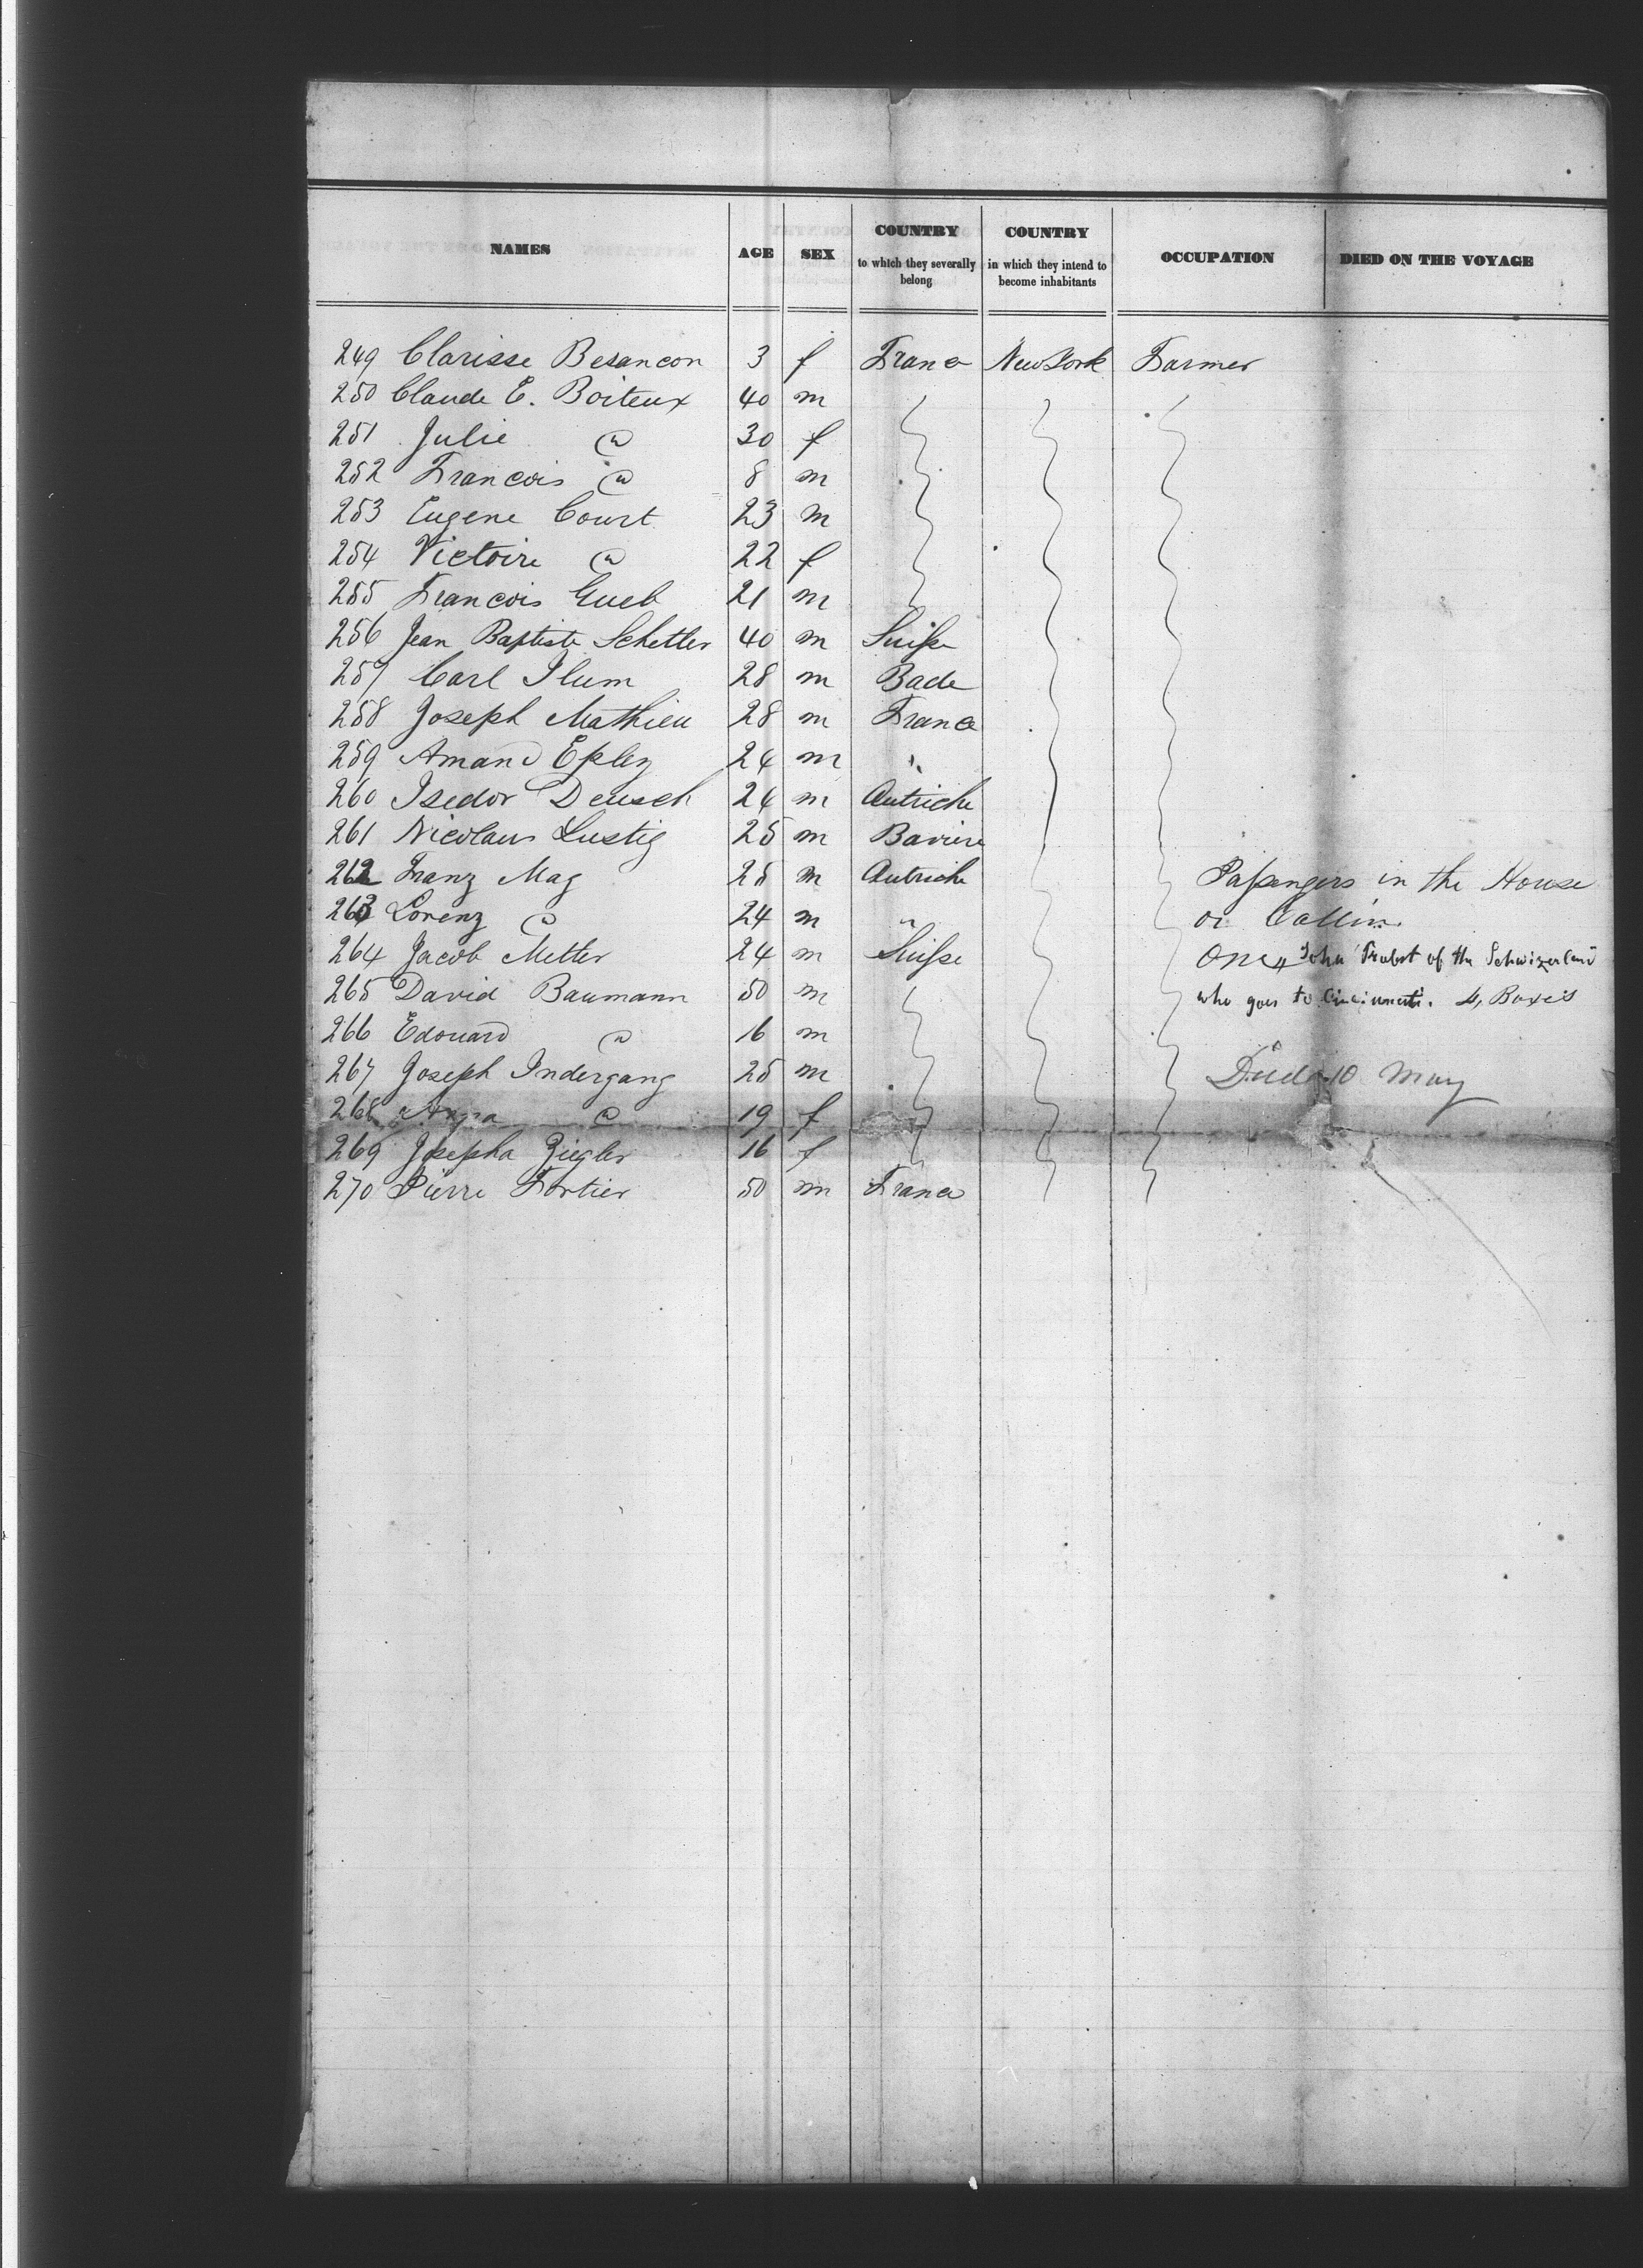 NAMES AGE SEX COUNTRY to which they severally belong COUNTRY in which they intend to become inhabitants OCCUPATION DIED ON THE VOYAGE
249 Clarisse Besancon 3 f France New York Farmer
250 Claude E. Boiteux 40 m
251 Julie @ 30 f
252 Francois @ 8 m
253 Eugene Court 23 m
254 Victoire @ 22 f
255 Francois Gueb 21 m
256 Jean Baptiste Schetler 40 m Suisse
257 Carl Ilum 28 m Bade
258 Joseph Mathieu 28 m France
259 Amand Epley 24 m "
260 Isedor Deusch 24 m Autriche
261 Nicolaus Lustig 25 m Baviere
262 Franz Mag 25 m Autriche Passengers in the House
263 Lorenz @ 24 m " or
264 Jacob Metler 24 m Suisse One John Probst of the Schwizerland
265 David Baumann 50 m who goes to Cincinnati. 4, Boxes
266 Edouard @ 16 m
267 Joseph Indergang 25 m Died 10 May
268 Anna @ 19 f
269 Josepha Ziegler 16 f
270 Pierre Fortier 50 m France